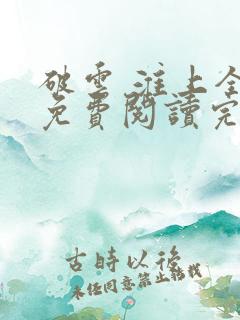 破雲 淮上全
免費閱讀完
古時以後
未經同意禁止轉載